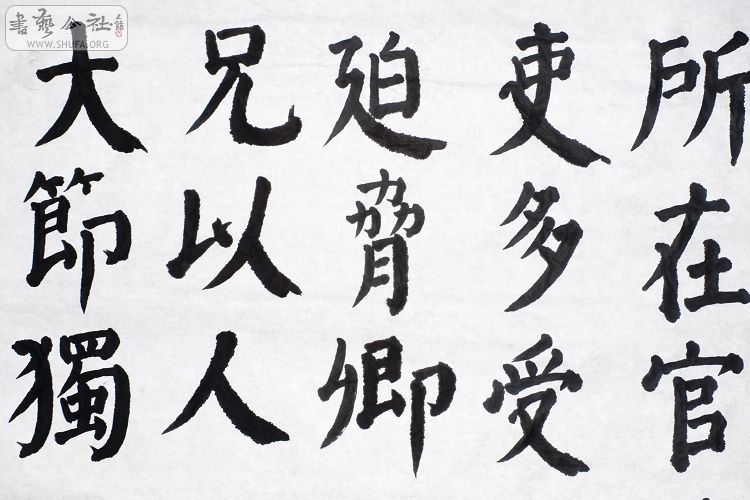 所在官
吏多受
迫脅卿
兄以人
大節獨
書藝公社
WWW.SHUFA.ORG